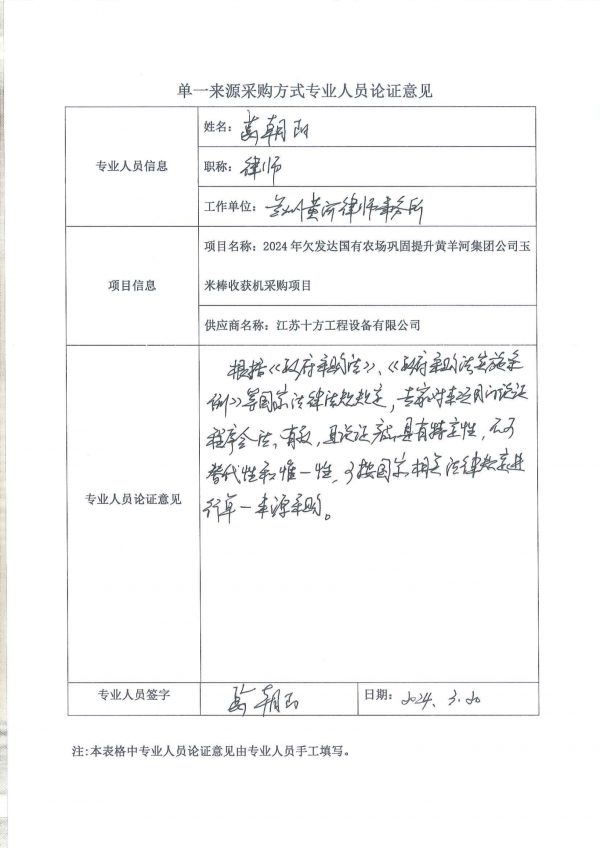 单一来源采购方式专业人员论证意见
专业人员信息
姓名：葛朝阳
职称：律师
工作单位：兰州黄河律师事务所
项目信息
项目名称：2024年欠发达国有农场巩固提升黄羊河集团公司玉
米棒收获机采购项目
供应商名称：江苏十方工程设备有限公司
专业人员论证意见
根据《政府采购法》、《政府采购法实施条
例》等国家法律法规规定，专家对本项目论证
程序合法、有效，且论证具有特定性，不可
替代性和惟一性，可按国家相关法律规定进
行单一来源采购。
专业人员签字
葛朝阳
日期：2024.3.20
注：本表格中专业人员论证意见由专业人员手工填写。